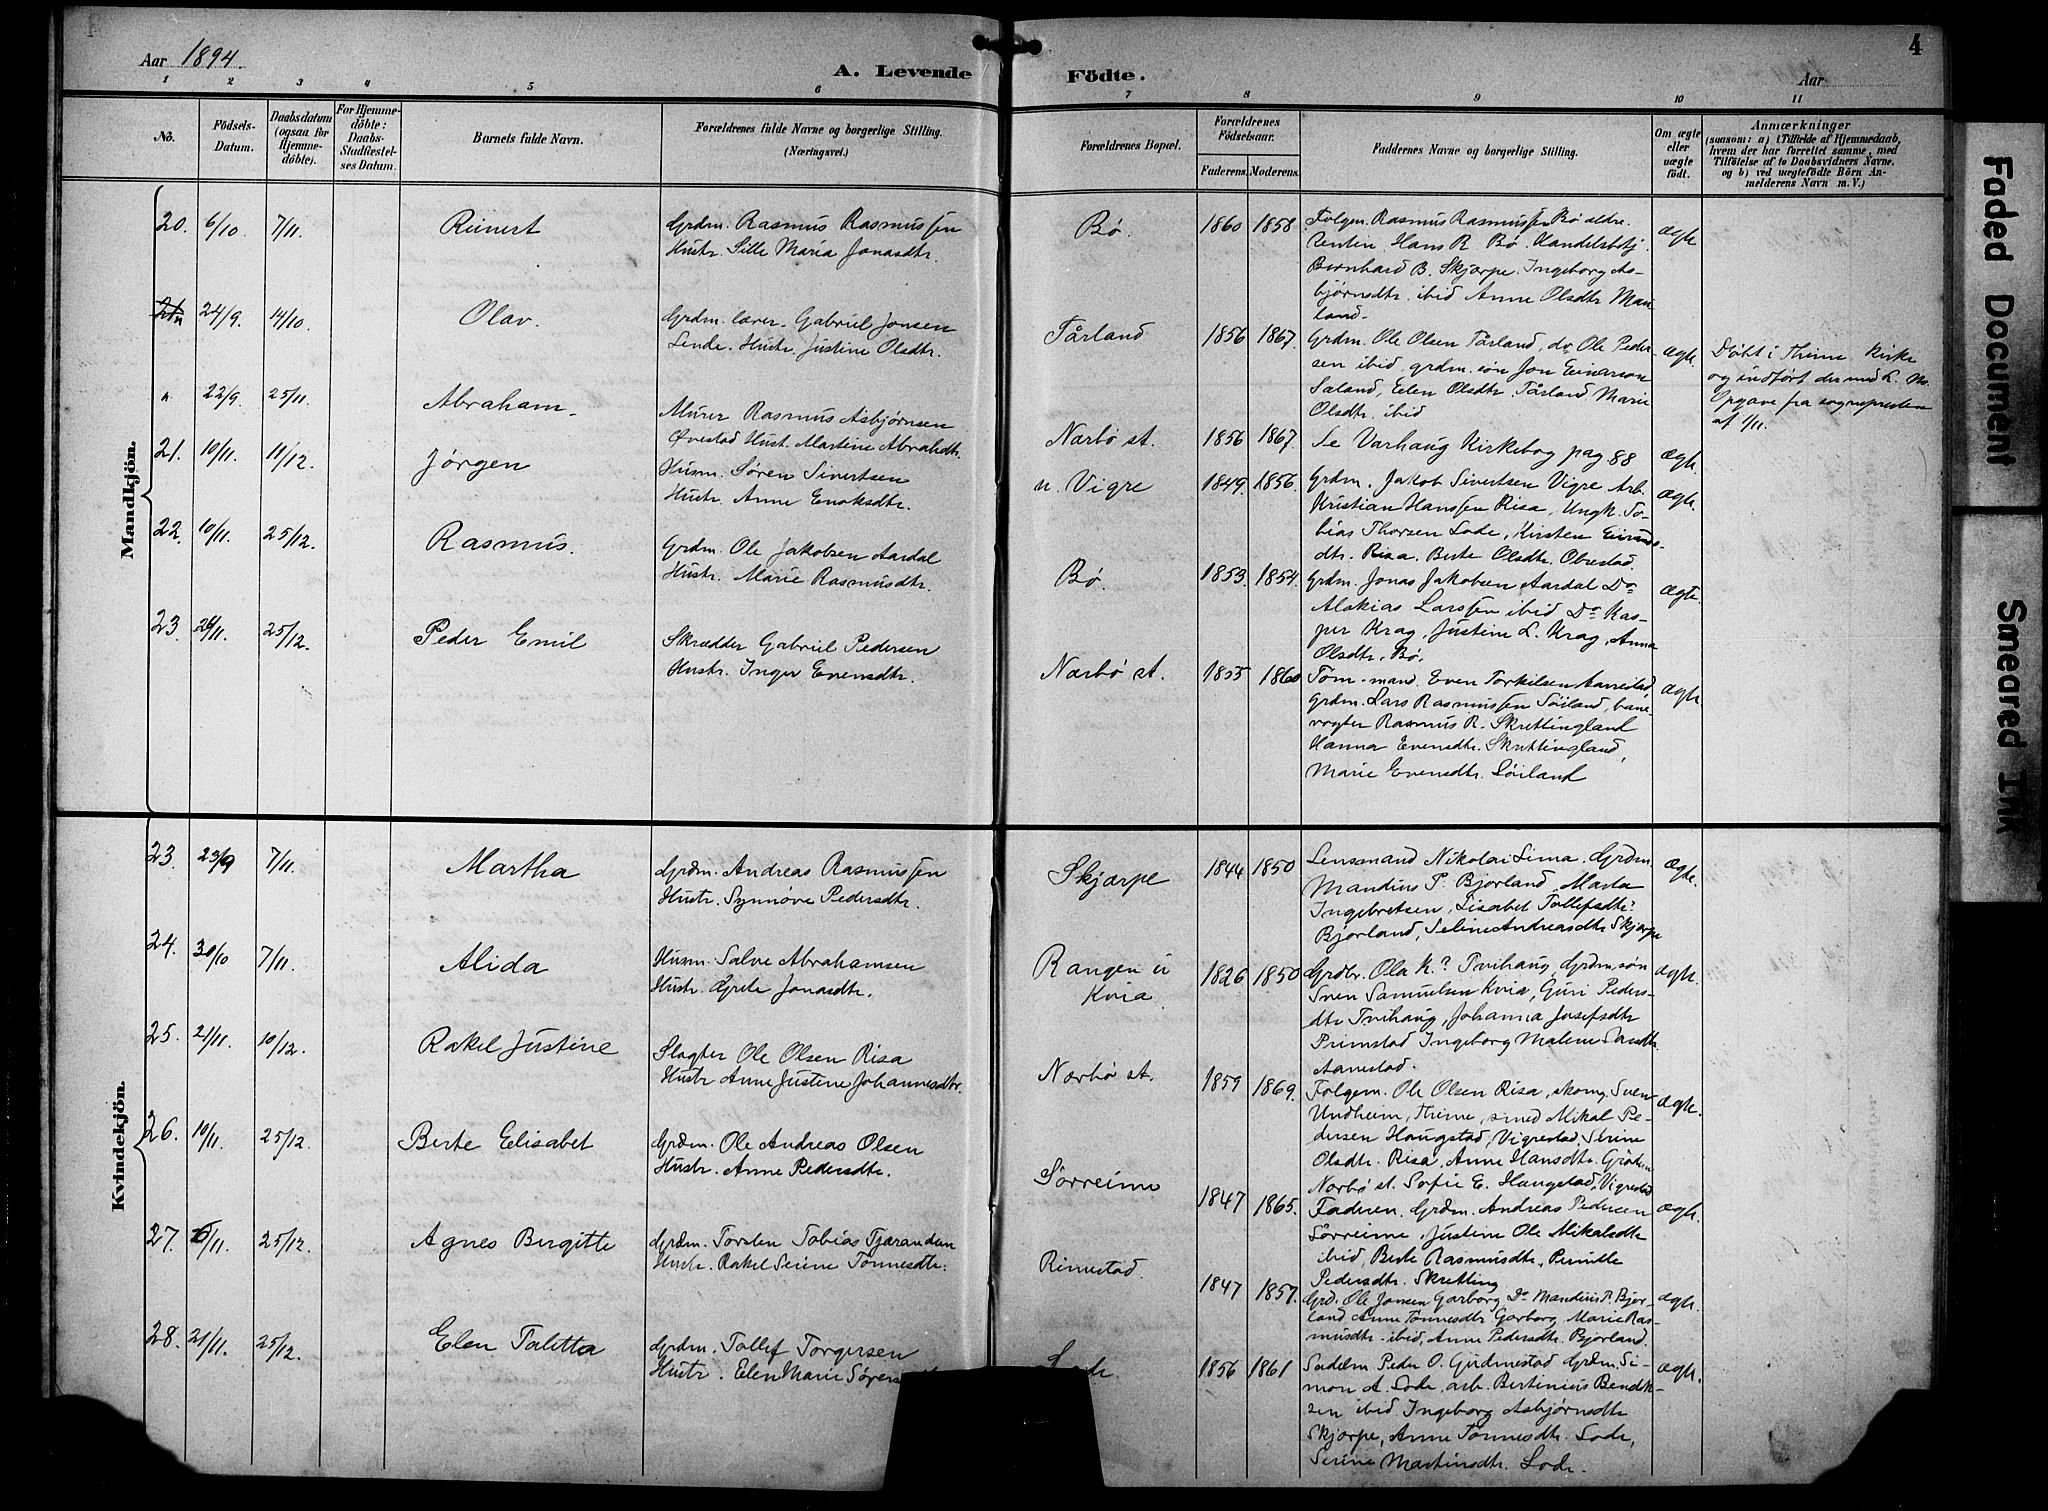 Aar 1894.
A. Levende Födte.
Aar
4
1 2 3 4 5 6 7 8 9 10 11
No.
Födsels-Datum.
Daabsdatum (ogsaa for Hjemme-döbte).
For Hjemme-döbte: Daabs-Stadfæstel-ses Datum.
Barnets fulde Navn.
Forældrenes fulde Navne og borgerlige Stilling. (Næringsvei.)
Forældrenes Bopæl.
Forældrenes Födselsaar.
Faderens. Moderens.
Faddernes Navne og borgerlige Stilling.
Om ægte eller uægte födt.
Anmærkninger
(saasom: a) i Tilfælde af Hjemmedaab,
hvem der har forrettet samme, med
Tilföielse af to Daabsvidners Navne.
og b) ved uægtefödte Börn An-
melderens Navn m. V.)
Mandkjön.
20. 6/10 7/11. Reinert
Grdm. Rasmus Rasmussen
Hustr. Sille Maria Jonasdtr.
Bø. 1860 1858
Folgem. Rasmus Rasmussen Bø ældre.
Rentin. Hans R. Bø. Handelsbetj.
Bernhard B. Skjærpe. Ingeborg As-
bjørnsdtr. ibid Anne Olsdtr Mau-
land.
ægte
24/9. 14/10. Olav.
Grdm. lærer. Gabriel Jonsen
Lende. Hustr. Justine Olsdtr.
Tårland 1856 1867.
Grdm. Ole Olsen Tårland, do Ole Peder-
sen ibid, grdm. søn Jon Einarson
Saland, Elen Olsdtr. Tårland Marie
Olsdtr. ibid
ægte.
Døbt i Thime Kirke
og indført der med L. No.
Opgave fra sognepresten
af 1/11.
" 22/9. 25/11. Abraham.
Murer Rasmus Asbjørnsen
Øvestad Hust. Martine Abrahdtr.
Nærbø st. 1856 1867.
Se Varhaug Kirkebog pag. 88
ægte.
21. 10/11. 11/12. Jørgen
Husm. Søren Sivertsen
Hustr. Anne Enoksdtr.
n. Vigre 1849. 1856.
Grdm. Jakob Sivertsen Vigre Arb.
Kristian Hanssen Risa, Ungk. To-
bias Thorsen Lode, Kirsten
dtr. Risa. Berte Olsdtr. Obrestad.
ægte.
22. 10/11. 25/12. Rasmus.
Grdm. Ole Jakobsen Aardal
Hustr. Marie Rasmusdtr.
Bø. 1853. 1854.
Grdm. Jonas Jakobsen Aardal Do
Larssen ibid Do Kas-
per Krag, Justine L. Krag, Anna
Olsdtr. Bø.
ægte.
23. 26/11. 25/12. Peder Emil
Skrædder Gabriel Pedersen
Hustr. Inger Evensdtr.
Nærbø st. 1855 1860
Töm-mand. Even Torkilsen Aarrestad,
grdm. Lars Rasmussen Söiland, bane-
vogter Rasmus R. Skrettingland
Hanna Evensdtr. Skrettingland,
Marie Evensdtr. Söiland
ægte.
Kvindekjön.
23. 23/9 7/11. Martha
Grdm. Andreas Rasmussen
Hustr. Synnøve Pedersdtr.
Skjærpe 1844 1850
Lensmand Nikolai Lima. Grdm.
Mandius P. Bjorland, Marta
Ingebretsen, Lisabet Tollefsdtr.
Bjorland, Seline Andreasdtr Skjærpe
ægte.
24. 30/10 7/11. Alida
Husm. Salve Abrahamsen
Hustr. Grete Jonasdtr.
Rangen u
Kvia. 1826 1850
Grdbr. Ola K. Tvihaug, Grdm. søn
Sven Samuelsen Kvia, Guri Peders-
dtr Tvihaug, Johanna Josefsdtr
Primstad Ingeborg Malene
Aanestad.
ægte.
25. 21/11. 10/12. Rakel Justine
Slagter Ole Olsen Risa
Hustr Anne Justine Johannesdtr.
Nærbø st. 1859 1869.
Folgem. Ole Olsen Risa, skom. Sven
Undheim, Thime, smed Mikal Pe-
dersen Haugstad, Vigrestad. Serine
Olsdtr. Risa, Anne Hansdtr.
Nærbø st. Sofie E. Haugstad, Vigrestad
ægte.
26. 10/11. 25/12. Berte Elisabet
Grdm. Ole Andreas Olsen
Hustr. Anne Pedersdtr.
Sörreime 1847 1865.
Faderen. Grdm. Andreas Pedersen
Sörreime, Justine Ole Mikalsdtr
ibid, Berte Rasmusdtr., Pernille
Pedersdtr. Skretting
ægte.
27. 5/11. 25/12. Agnes Birgitte
Grdm. Torsten Tobias Tjærandsen
Hustr. Rakel Serine Tönnesdtr.
Rimestad. 1847 1857.
Grd. Ole Jonsen Garborg Do Mandius P. Bjor-
land, Anne Tönnesdtr Garborg, Marie Ras-
musdtr. ibid, Anne Pedersdtr. Bjorland.
ægte.
28. 21/11. 25/12. Elen Talitta
Grdm. Tollef Torgersen
Hustr. Elen Marie
Lode. 1856 1861
Sadelm. Peder O. Gudmestad Grdm. Si-
mon A. Lode, arb. Bertinius Bendik-
sen ibid Ingeborg Asbjörnsdtr
Skjærpe, Anne Tönnesdtr. Lode,
Serine Martinsdtr. Lode.
ægte.
Faded Document
Smeared Ink